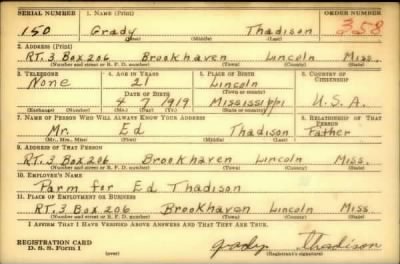 SERIAL NUMBER 1. NAME (Print) ORDER NUMBER
150 Grady Thadison 358
(First) (Middle) (Last)
2. ADDRESS (Print)
RT. 3 Box 206 Brookhaven Lincoln Miss.
(Number and street or R. F. D. number) (Town) (County) (State)
3. TELEPHONE 4. AGE IN YEARS 5. PLACE OF BIRTH 6. COUNTRY OF CITIZENSHIP
None 21 Lincoln
(Town or county)
DATE OF BIRTH
4 7 1919 Mississippi U.S.A.
(Exchange) (Number) (Mo.) (Day) (Yr.) (State or country)
7. NAME OF PERSON WHO WILL ALWAYS KNOW YOUR ADDRESS 8. RELATIONSHIP OF THAT PERSON
Mr. Ed Thadison Father
(Mr., Mrs., Miss) (First) (Middle) (Last)
9. ADDRESS OF THAT PERSON
RT. 3 Box 206 Brookhaven Lincoln Miss.
(Number and street or R. F. D. number) (Town) (County) (State)
10. EMPLOYER'S NAME
Farm for Ed Thadison
11. PLACE OF EMPLOYMENT OR BUSINESS
RT. 3 Box 206 Brookhaven Lincoln Miss
(Number and street or R. F. D. number) (Town) (County) (State)
I AFFIRM THAT I HAVE VERIFIED ABOVE ANSWERS AND THAT THEY ARE TRUE.
REGISTRATION CARD
D. S. S. Form 1 (over) Grady Thadison
(Registrant's signature)